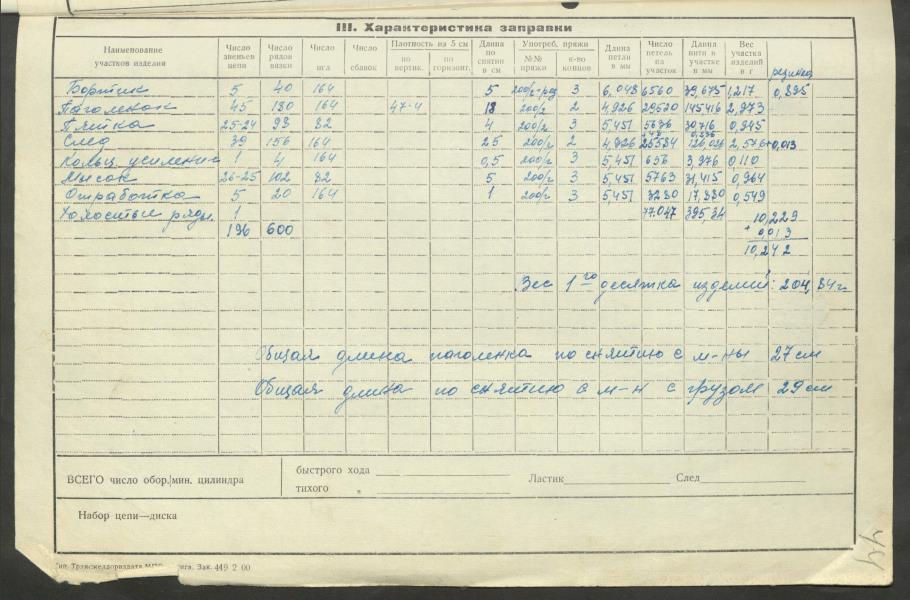 III. Характеристика заправки
Наименование участков изделия | Число звеньев цепи | Число рядов вязки | Число игл | Число сбавок | Плотность на 5 см: по вертик. | по горизонт. | Длина по снятию в см | Употреб. пряжи: №№ пряжи | к-во концов | Длина петли в мм | Число петель на участок | Длина нити в участке в мм | Вес участка изделий в г | резинка
Бортик 5 40 164 5 200/2-рез 3 6,048 6560 39,675 1,217 0,895
Паголенок 45 180 164 47-4 18 200/2 2 4,926 29520 145416 2,973
Пятка 25-24 93 82 4 200/2 3 5,451 5636 30716 0,945
След 39 156 164 25 200/2 2 4,926 25584 126,026 2,576+0,013
Кольц. усиление 1 4 164 0,5 200/2 3 5,451 656 3,976 0,110
Мысок 26-25 102 82 5 200/2 3 5,451 5763 31,415 0,964
Отработка 5 20 164 1 200/2 3 5,451 3280 17,880 0,549
Холостые ряды 1 77.047 395,34 10,229
196 600 + 0,013
10,242
Вес 1го десятка изделий: 204,84 г
Общая длина паголенка по снятию с м-ны 27 см
Общая длина по снятию с м-н с грузом 29 см
ВСЕГО число обор./мин. цилиндра
быстрого хода
тихого "
Ластик
След
Набор цепи—диска
Зак. 449 2 00
44